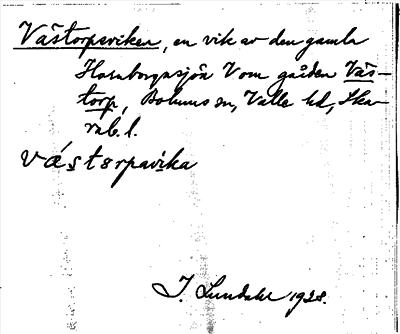 Västorpsviken, en vik av den gamla
Hornborgasjön V om gården Väs-
torp, Bolums sn, Valle hd, Ska-
rab. l.
västorpavika
I. Lundahl 1928.